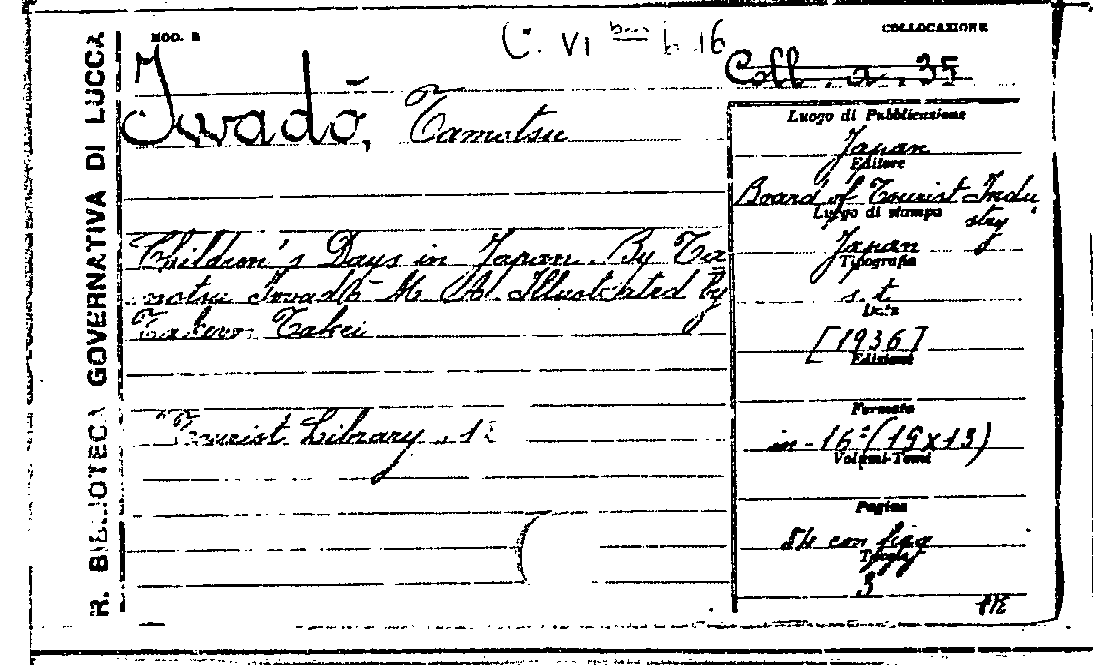 R. BIBLIOTECA GOVERNATIVA DI LUCCA
MOD. B
C. VI b. 16
COLLOCAZIONE
Coll. a. 35
Iwadō, Tamotsu
Children's Days in Japan. By Ta
motsu Iwadō M. A. Illustrated by
Takeo Takei
Tourist Library, 1
Luogo di Pubblicazione
Japan
Editore
Board of Tourist Indu
stry
Luogo di stampa
Japan
Tipografia
s. t.
Data
[1936]
Edizione
Formato
in-16° (19x13)
Volumi-Tomi
Pagine
54 con figg
3